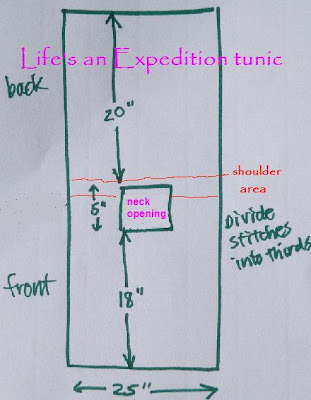 Life's an Expedition tunic
back
20"
shoulder
area
5"
neck
opening
Divide
stitches
into thirds
front
18"
25"